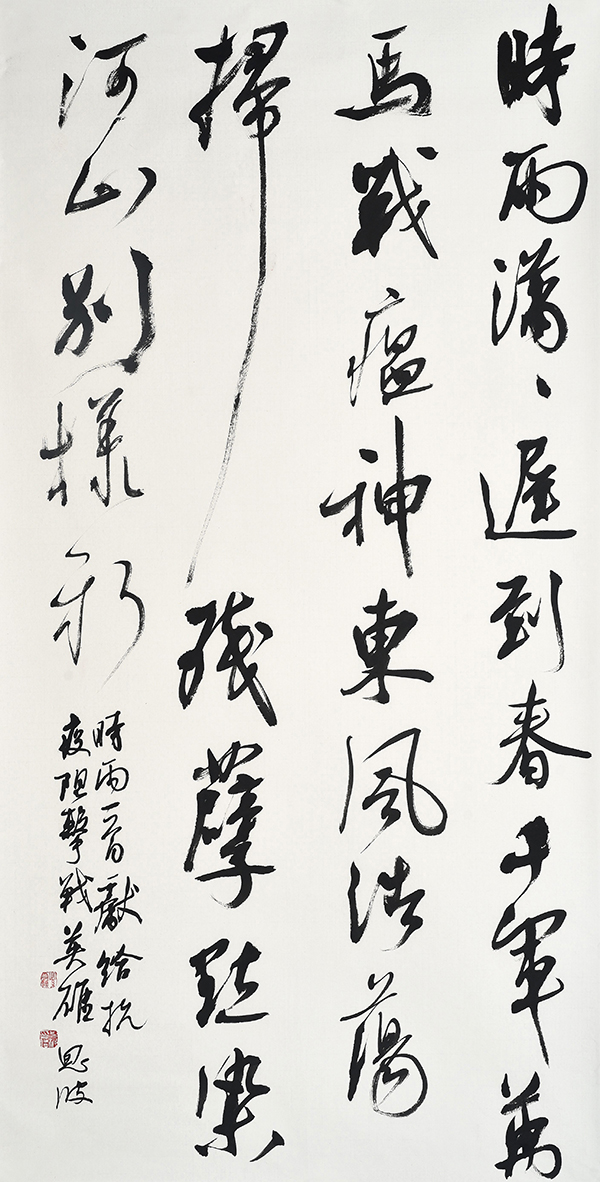 時雨瀟〻遲到春千軍萬
馬戰瘟神東風浩蕩
掃殘孽點染
河山別樣新
時雨一首獻給抗
疫阻擊戰英雄